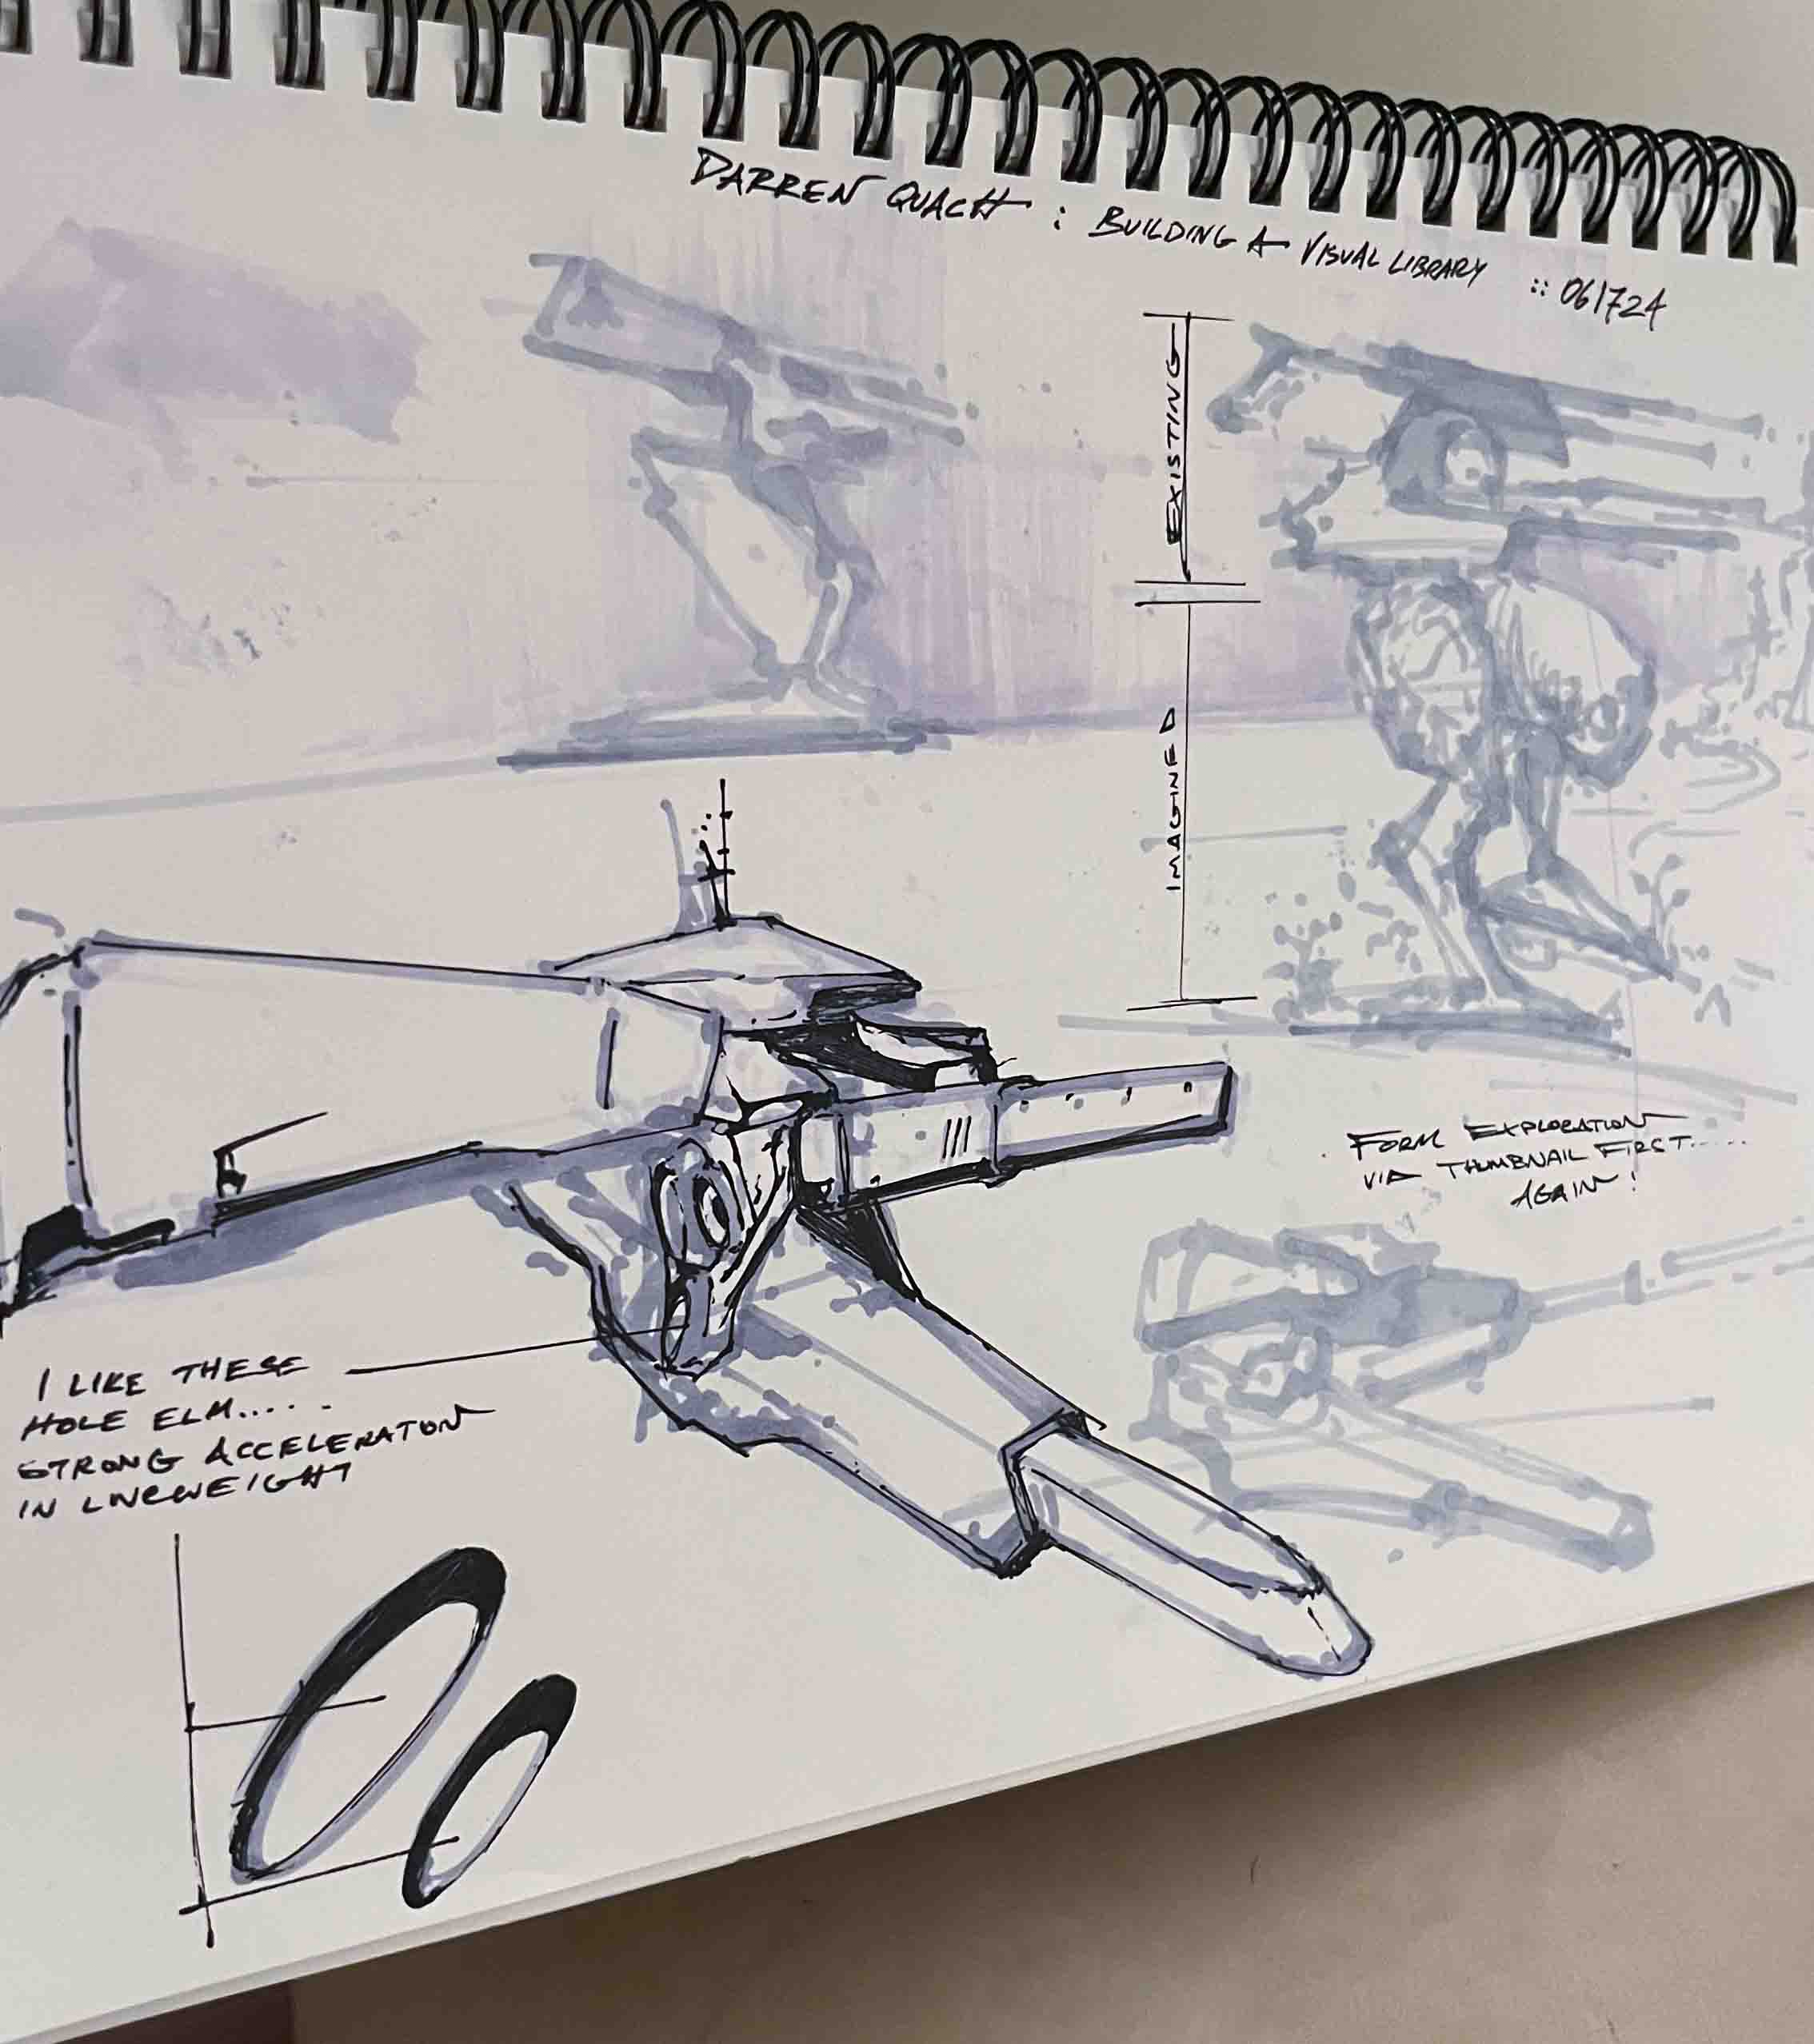 DARREN QUACH : BUILDING A VISUAL LIBRARY :: 061724
EXISTING
IMAGINED
FORM EXPLORATION
VIA THUMBNAIL FIRST.....
AGAIN!
I LIKE THESE
HOLE ELM.....
STRONG ACCELERATON
IN LINEWEIGHT